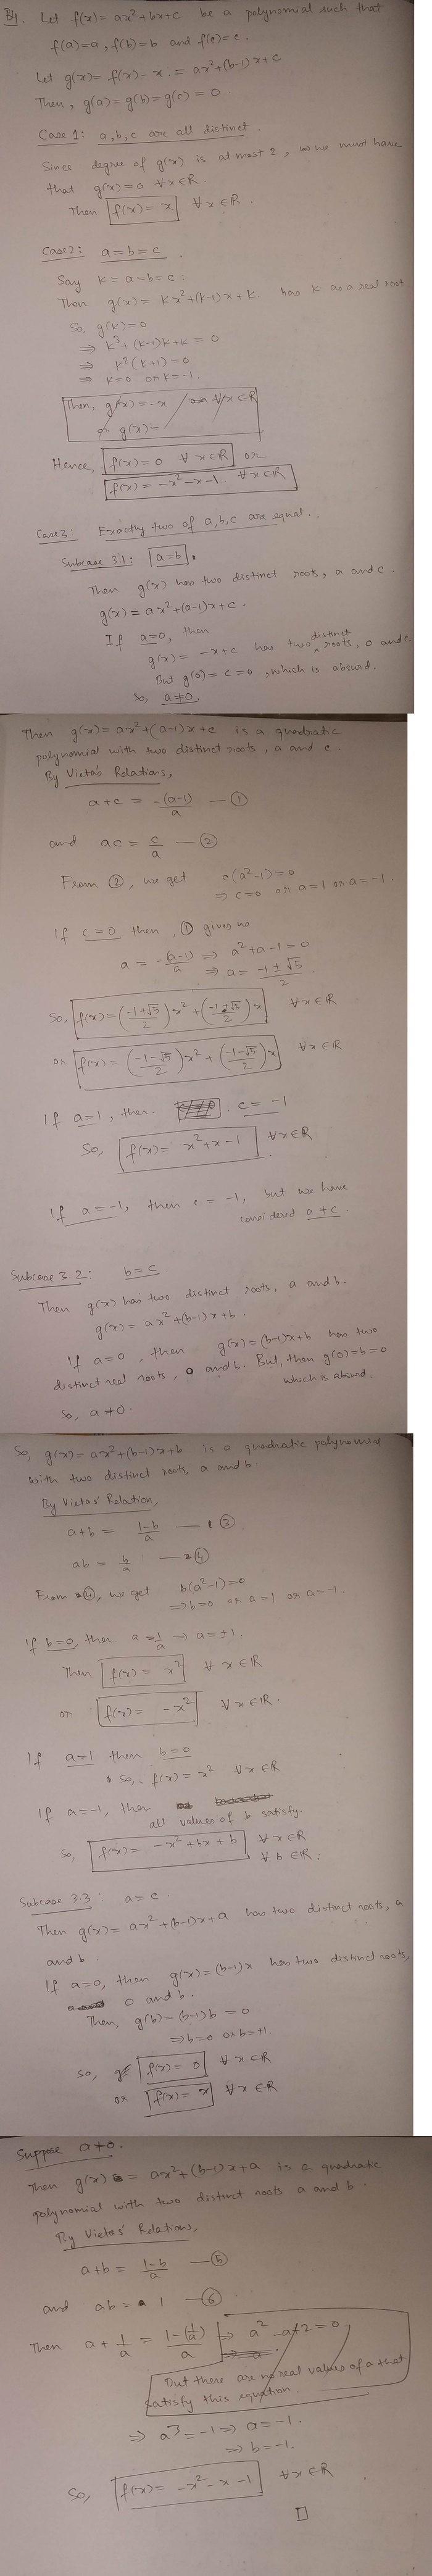 B4. Let f(x) = ax² + bx + c be a polynomial such that
f(a)=a, f(b)=b and f(c)=c.
Let g(x) = f(x) - x. = ax² + (b-1)x + c
Then, g(a) = g(b) = g(c) = 0.
Case 1: a, b, c are all distinct.
Since degree of g(x) is at most 2, we must have
that g(x) = 0 ∀ x ∈ R.
Then f(x) = x ∀ x ∈ R.
Case 2: a = b = c.
Say k = a = b = c.
Then g(x) = kx² + (k-1)x + k. has k as a real root
So, g(k) = 0
⇒ k³ + (k-1)k + k = 0
⇒ k²(k+1) = 0
⇒ k = 0 or k = -1.
Then, g(x) = -x ∀ x ∈ R
or g(x) =
Hence, f(x) = 0 ∀ x ∈ R or
f(x) = -x² - x - 1 ∀ x ∈ R
Case 3: Exactly two of a, b, c are equal.
Subcase 3.1: a = b.
Then g(x) has two distinct roots, a and c.
g(x) = ax² + (a-1)x + c.
If a=0, then
g(x) = -x + c has two distinct roots, 0 and c.
But g(0) = c = 0, which is absurd.
So, a ≠ 0
Then g(x) = ax² + (a-1)x + c is a quadratic
polynomial with two distinct roots, a and c.
By Vieta's Relations,
a + c = -(a-1)/a — ①
and ac = c/a — ②
From ②, we get c(a²-1) = 0
⇒ c = 0 or a = 1 or a = -1.
If c = 0 then, ① gives
a = -(a-1)/a ⇒ a² + a - 1 = 0
⇒ a = (-1 ± √5)/2
So, f(x) = ((-1+√5)/2)x² + ((-1+√5)/2)x ∀ x ∈ R
or f(x) = ((-1-√5)/2)x² + ((-1-√5)/2)x ∀ x ∈ R
If a = 1, then c = -1
So, f(x) = x² + x - 1 ∀ x ∈ R
If a = -1, then c = -1, but we have
considered a ≠ c.
Subcase 3.2: b = c
Then g(x) has two distinct roots, a and b.
g(x) = ax² + (b-1)x + b.
If a = 0, then g(x) = (b-1)x + b has two
distinct real roots, 0 and b. But, then g(0) = b = 0
which is absurd.
So, a ≠ 0.
So, g(x) = ax² + (b-1)x + b is a quadratic polynomial
with two distinct roots, a and b.
By Vietas' Relation,
a + b = (1-b)/a — ③
ab = b/a — ④
From ④, we get b(a²-1) = 0
⇒ b = 0 or a = 1 or a = -1.
If b = 0, then a = 1/a ⇒ a = ±1.
Then f(x) = x² ∀ x ∈ R
or f(x) = -x² ∀ x ∈ R.
If a = 1 then b = 0
So, f(x) = x² ∀ x ∈ R
If a = -1, then
all values of b satisfy.
So, f(x) = -x² + bx + b ∀ x ∈ R
∀ b ∈ R.
Subcase 3.3: a = c.
Then g(x) = ax² + (b-1)x + a has two distinct roots, a
and b.
If a = 0, then g(x) = (b-1)x has two distinct roots,
0 and b.
Then, g(b) = (b-1)b = 0
⇒ b = 0 or b = +1.
So, f(x) = 0 ∀ x ∈ R
or f(x) = x ∀ x ∈ R
Suppose a ≠ 0.
Then g(x) = ax² + (b-1)x + a is a quadratic
polynomial with two distinct roots a and b.
By Vietas' Relations,
a + b = (1-b)/a — ⑤
and ab = 1 — ⑥
Then a + 1/a = (1-(1/a))/a ⇒ a² - a + 2 = 0
⇒ a
But there are no real values of a that
satisfy this equation.
⇒ a³ = -1 ⇒ a = -1.
⇒ b = -1.
So, f(x) = -x² - x - 1 ∀ x ∈ R
□